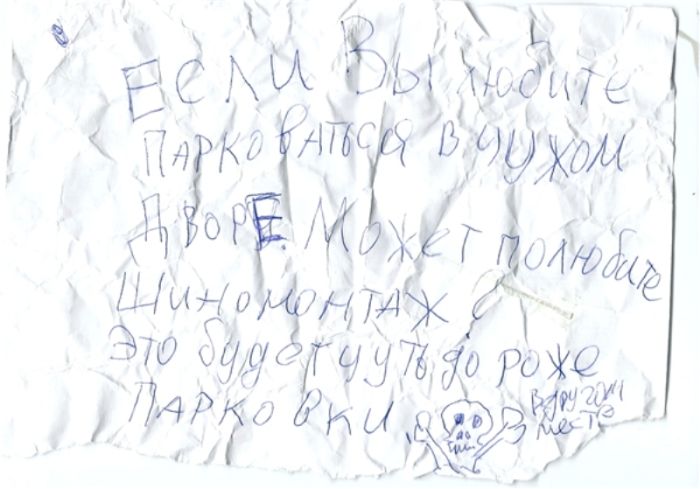 Если Вы любите
парковаться в чужом
дворЕ. Может полюбите
шиномонтаж ?
Это будет чуть дороже
парковки
в другом
месте